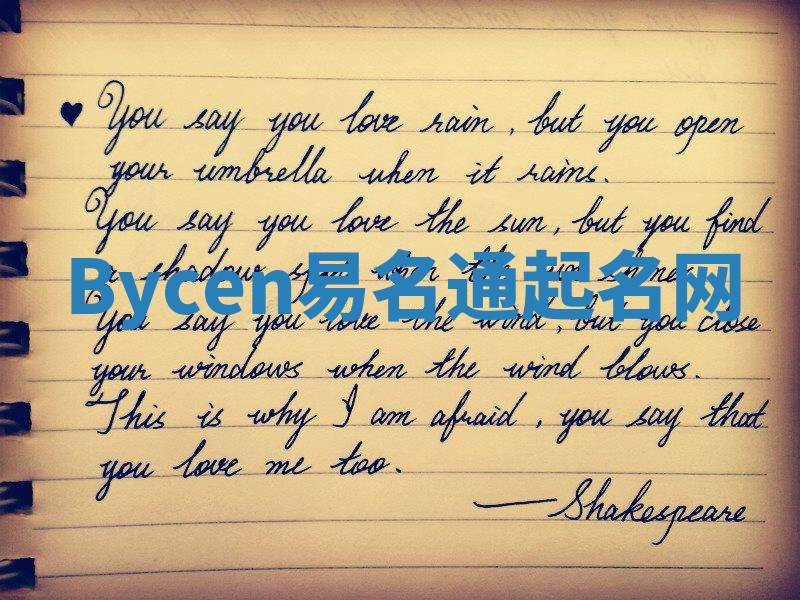 ♥ You say you love rain, but you open
your umbrella when it rains.
You say you love the sun, but you find
a shadow spot when the sun shines.
Bycen易名通起名网
You say you love the wind, but you close
your windows when the wind blows.
This is why I am afraid, you say that
you love me too.
— Shakespeare